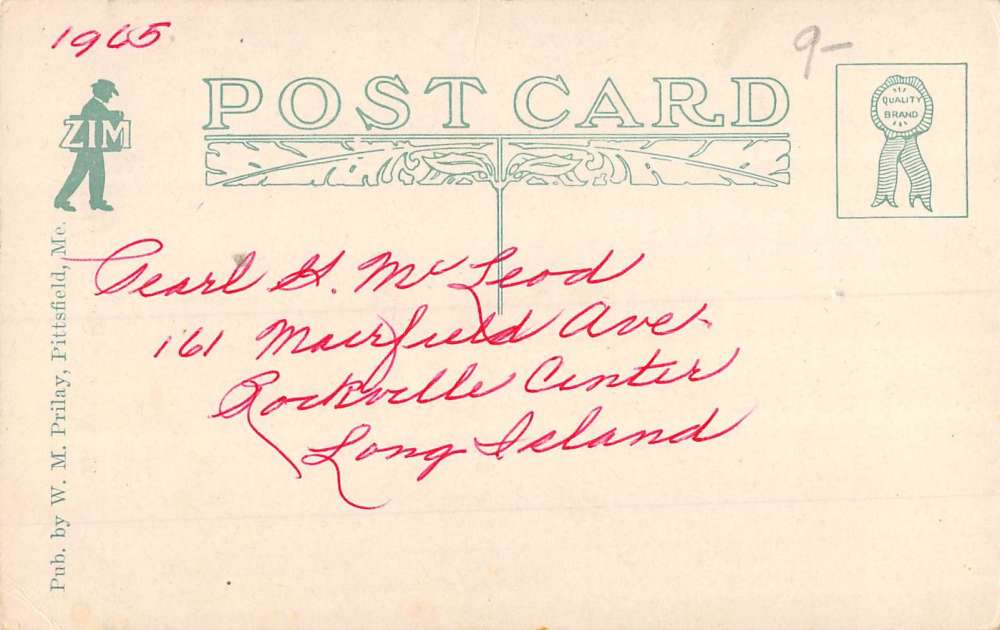 1965
9-
ZIM
POST CARD
QUALITY
BRAND
Pearl H. McLeod
161 Muirfield Ave.
Rockville Center
Long Island
Pub. by W. M. Prilay, Pittsfield, Me.